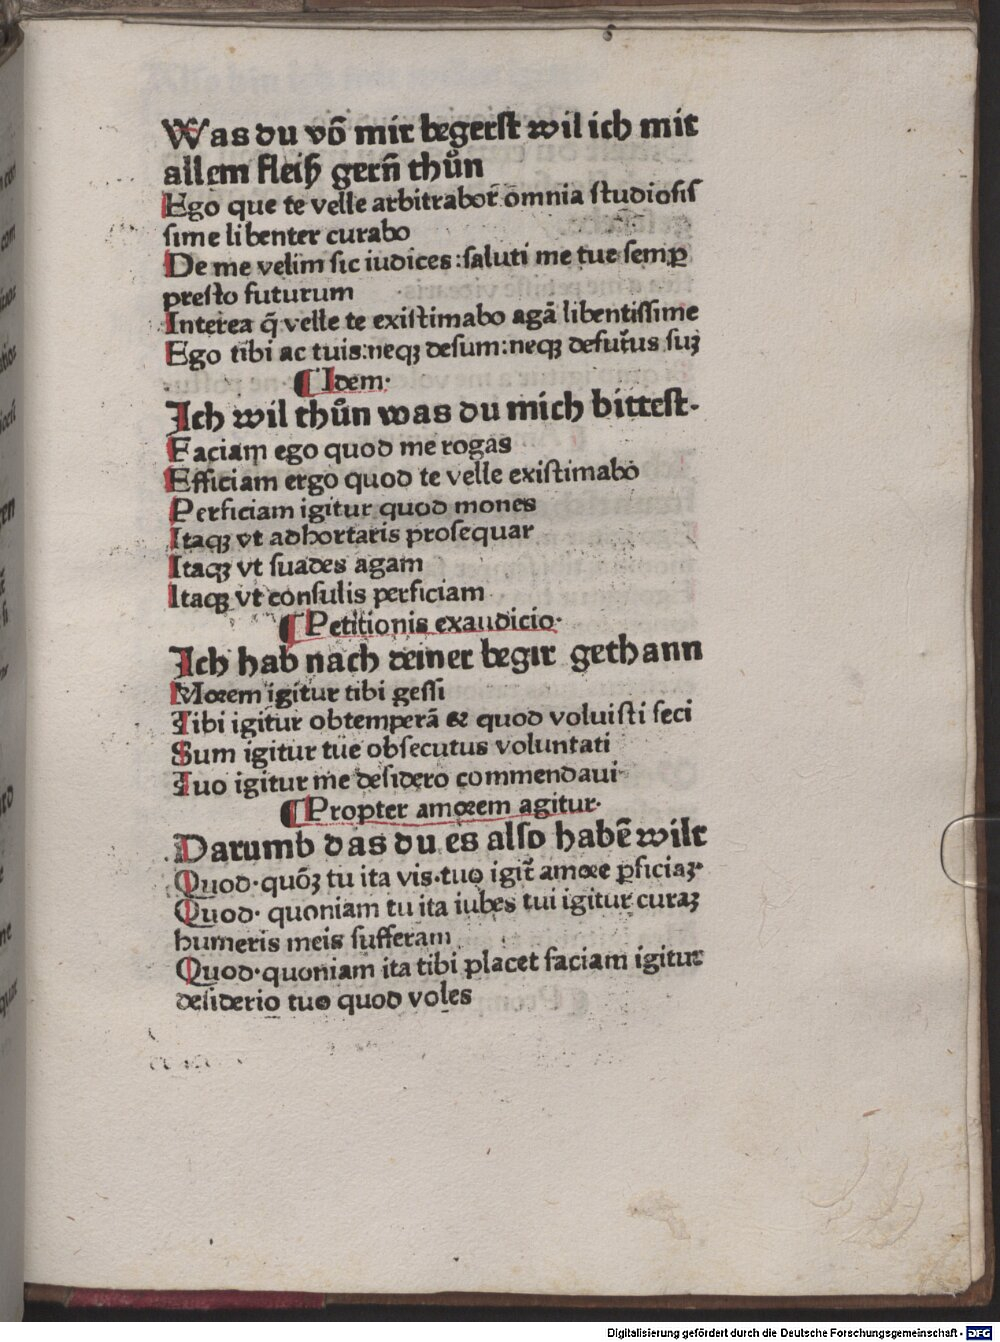 Was du võ mir begerst wil ich mit
allem fleiß gerñ thůn
Ego que te velle arbitrabor̃ omnia studiosis
sime libenter curabo
De me velim sic iudices :saluti me tue semꝑ
presto futurum
Interea q̃ velle te existimabo agã libentissime
Ego tibi ac tuis:neqꝫ desum:neqꝫ defutur̃us suꝫ
¶ Idem·
Ich wil thůn was du mich bittest·
Faciam ego quod me rogas
Efficiam ergo quod te velle existimabo
Perficiam igitur quod mones
Itaqꝫ vt adhortaris prosequar
Itaqꝫ vt suades agam
Itaqꝫ vt consulis perficiam
¶ Petitionis exaudicio·
Ich hab nach deiner begir gethann
Morem igitur tibi gessi
Tibi igitur obtemperã & quod voluisti feci
Sum igitur tue obsecutus voluntati
Tuo igitur me desidero commendaui
¶ Propter amorem agitur·
Darumb das du es also habẽ wilt
Quod·quõꝫ tu ita vis·tuo igit̃ amore ꝑficiaꝫ·
Quod· quoniam tu ita iubes tui igitur curaꝫ
humeris meis sufferam
Quod·quoniam ita tibi placet faciam igitur
desiderio tuo quod voles
Digitalisierung gefördert durch die Deutsche Forschungsgemeinschaft - DFG